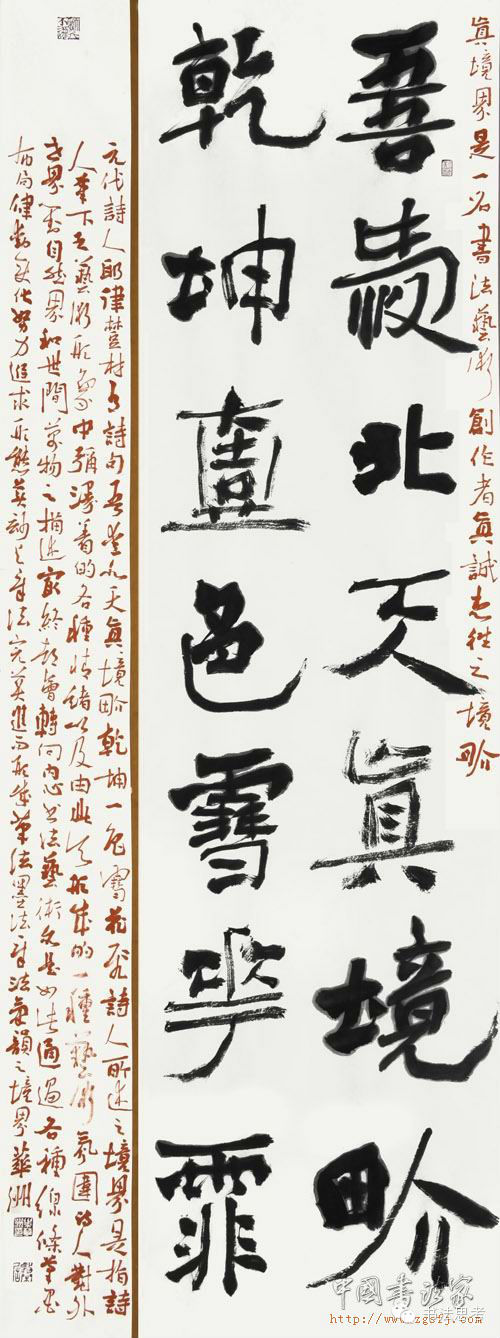 眞境界是一名書法藝術創作者眞誠志往之境畍
吾愛北天眞境畍
乾坤壹色雪花霏
元代詩人耶律楚材有詩句吾愛北天眞境畍乾坤一色雪花飛詩人所述之境界是指詩
人筆下之藝術形象中彌漫着的各種情緒以及由此形成的一種藝術氛圍詩人對外
界對自然界和世間萬物之描述最終都會轉向內心書法藝術亦是如此通過各種線條筆墨
布局律動變化努力追求形態美妙之章法完美進而形成筆法墨法章法氣韻之境界
中国书法家
书法思考
http://www.zgsfj.com